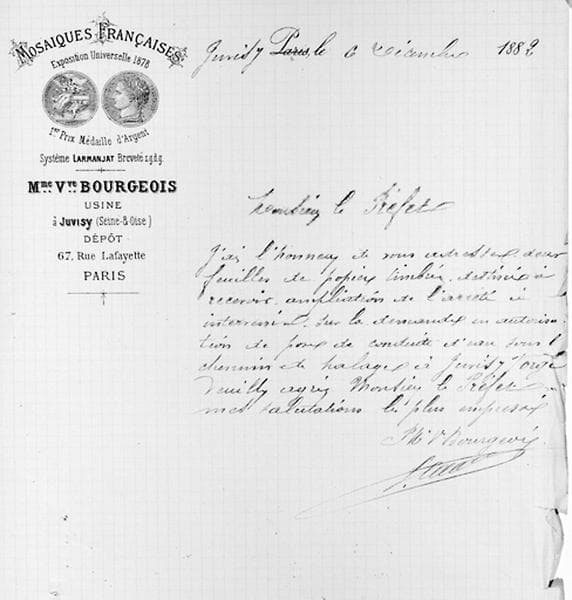 MOSAIQUES FRANÇAISES
Exposition Universelle 1878
1er Prix Médaille d'Argent
Système LARMANJAT Breveté s.g.d.g.
Mme Vve BOURGEOIS
USINE
à JUVISY (Seine-&-Oise)
DÉPÔT
67, Rue Lafayette
PARIS
Juvisy Paris, le 6 Décembre 1882
Monsieur le Préfet
J'ai l'honneur de vous adresser deux
feuilles de papier timbré destinées à
recevoir ampliation de l'arrêté à
intervenir sur la demande en autorisa
tion de pose de conduite d'eau sous le
chemin de halage à Juvisy s/orge
Veuillez agréer Monsieur le Préfet
mes salutations les plus empressées
Vve Bourgeois